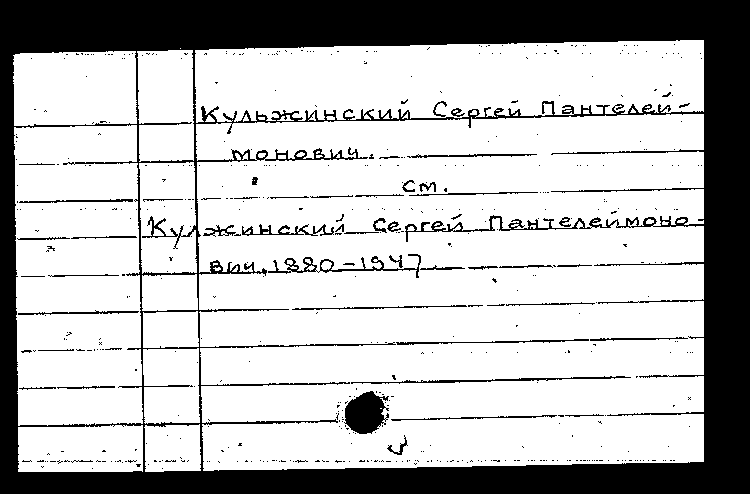 Кульжинский Сергей Пантелей-
монович.
см.
Кулжинский Сергей Пантелеймоно-
вич, 1880-1947